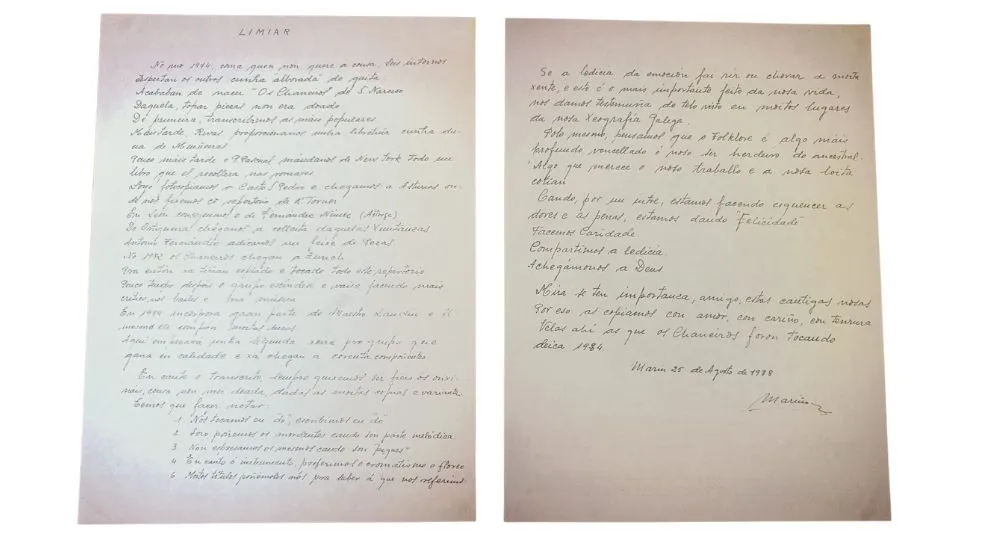 LIMIAR
No ano 1974, coma quen non quere a cousa, dous internos
despertan os outros cunha alborada de gaita
Acababan de nacer "Os Chaneiros" de S. Narciso
Daquela, topar pezas non era doado
De primeira, transcribimos as máis populares
Máis tarde, Rivas proporcionanos unha libreta cunha du-
cia de Muñeiras
Pouco máis tarde o P. mándanos de New York todo un
libro que el recollera nas romaxes
Logo fotocopiamos o Casto S. Pedro e chegamos a Asturias on-
de nos facemos co repertorio de R. Torner
En León conseguimos o de Fernández Núñez (Astorga)
De Ortigueira cheganos a colleita daquelas Xuntanzas
Antonio Fernández adicanos un feixe de pezas
No 1982 os Chaneiros chegan a Zurich
Pra entón xa tiñan copiado e tocado todo este repertorio
Pouco tempo depois o grupo escíndese e vaise facendo máis
crítico, nos bailes e boa música
En 1984 incorpora gran parte de Nacho Landín e il
mesmo compón
Aquí empezara unha segunda xeira pro grupo que
gana en calidade e xa chegan a corenta compoñentes
En canto o Transcrito, sempre quixemos ser fieis os orixi-
nais, cousa non moi doada, dadas as moitas copias e variantes.
Temos que facer notar:
1 Nós tocamos en "do", escribimos en "do"
2 Soio poñemos os mordentes cando son parte melódica
3 Non escribimos os mesmos cando son "piques"
4 En canto ó instrumento, preferimos o cromatismo o floreo
6 Moitos títulos poñémolos nós pra saber á que nos referimos
Se a ledicia da emoción fai rir ou chorar a moita
xente, e este é o mais importante feito da nosa vida,
nos damos testemuña de telo visto en moitos lugares
da nosa Xeografía Galega.
Polo mesmo, pensamos que o Folklore é algo máis
profundo, vencellado ó noso ser herdeiro do ancestral.
Algo que merece o noso traballo e a nosa loita
cotián
Cando, por un intre, estamos facendo esquencer as
dores e as penas, estamos dando "Felicidade"
Facemos Caridade.
Compartimos a ledicia
Achegámonos a Deus
Mira se ten importanca, amigo, estas cantigas nosas
Por eso as copiamos con amor, con cariño, con tenrura
Telas ahí as que os Chaneiros foron tocando
deica 1984
Marin 25 de Agosto de 1988